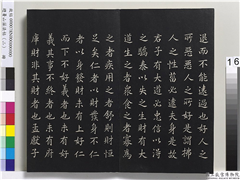 退而不能遠過也好人之
所惡惡人之所好是謂拂
人之性菑必逮夫身是故
君子有大道必忠信以得
之驕泰以失之生財有大
道生之者眾食之者寡為
之者疾用之者舒則財恒
足矣仁者以財發身不仁
者以身發財未有上好仁
而下不好義者也未有好
義其事不終者也未有府
庫財非其財者也孟獻子
16